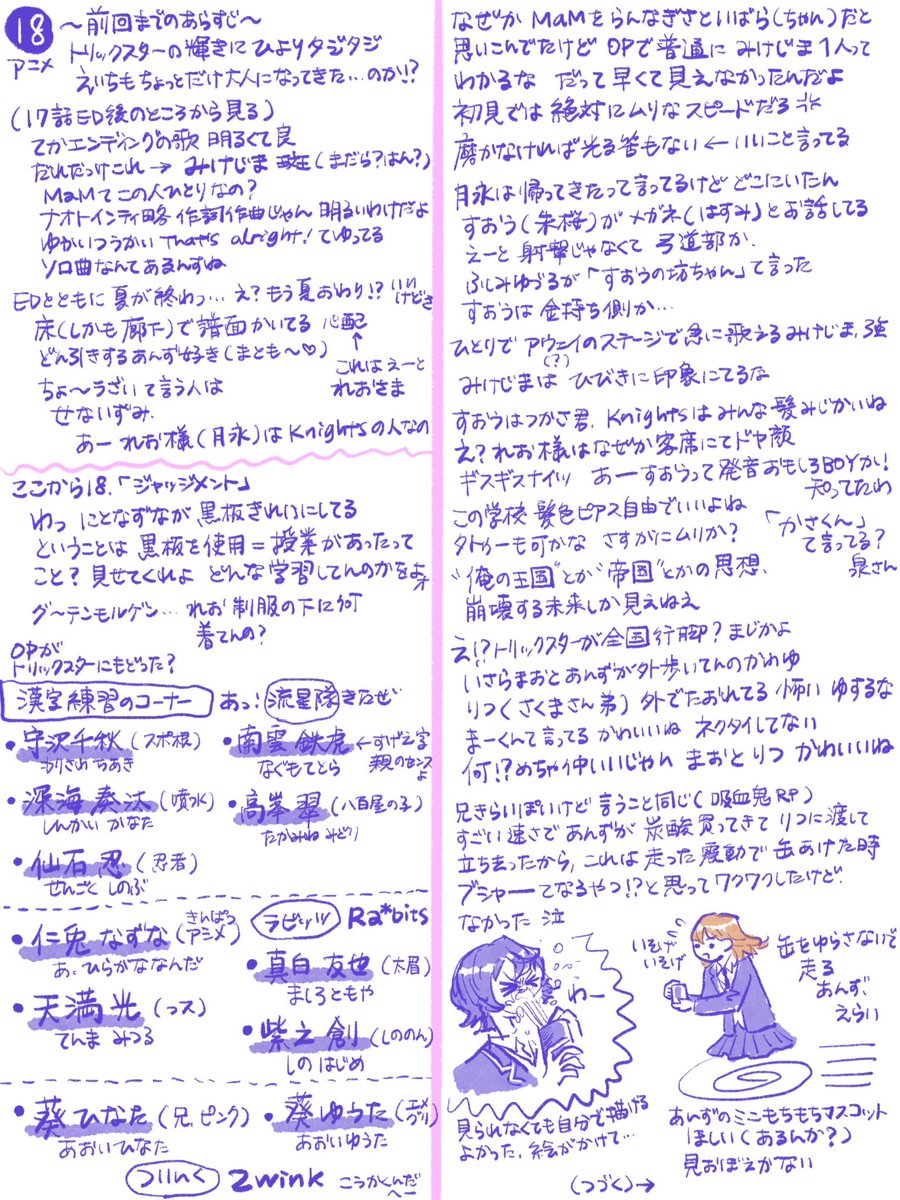 18
アニメ
〜前回までのあらすじ〜
トリックスターの輝きにひよりタジタジ
えいちもちょっとだけ大人になってきた…のか!?
(17話ED後のところから見る)
てかエンディングの歌 明るくて良
だれだっけこれ → みけじま斑(まだら?はん?)
MaMてこの人ひとりなの?
ナオトインティ略 作詞作曲じゃん 明るいわけだよ
ゆかいつうかい That's alright! てゆってる
ソロ曲なんてあるんすね
EDとともに夏が終わっ…え?もう夏おわり!? いいけどさ
床(しかも廊下)で譜面かいてる 心配
どん引きするあんず好き(まとも〜♡)
これはえーと
れおさま
ちょ〜うざいて言う人は
せないずみ.
あー れお様(月永)はKnightsの人なの
ここから18.「ジャッジメント」
わっ にとなずなが黒板きれいにしてる
ということは 黒板を使用=授業があったって
こと?見せてくれよ どんな学習してんのかをよォ
グーテンモルゲン… れお 制服の下に何
着てんの?
OPが
トリックスターにもどった?
漢字練習のコーナー あっ!流星隊きたぜ
・守沢千秋(スポ根)
もりさわ ちあき
・南雲 鉄虎 ←すげえ字
なぐも てとら 親のセンスよ
・深海 奏汰(噴水)
しんかい かなた
・高峯 翠(八百屋の子)
たかみね みどり
・仙石 忍(忍者)
せんごく しのぶ
・仁兎 なずな(きんぱつアニメ)
あ、ひらがななんだ
ラビッツ Ra*bits
・真白 友也(太眉)
ましろ ともや
・天満 光(っス)
てんま みつる
・紫之 創(しののん)
しの はじめ
・葵 ひなた(兄.ピンク)
あおい ひなた
・葵 ゆうた(エメグリ)
あおい ゆうた
ついんく 2wink こうかくんだ
へー
なぜか MaMを らんなぎさといばら(ちゃん)だと
思いこんでたけど OPで普通に みけじま1人って
わかるな だって早くて見えなかったんだよ
初見では絶対にムリなスピードだろ
磨かなければ光る筈もない ←いいこと言ってる
月永は帰ってきたって言ってるけど どこにいたん
すおう(朱桜)がメガネ(はすみ)とお話してる
えーと 射撃じゃなくて 弓道部か.
ふしみゆづるが「すおうの坊ちゃん」て言った
すおうは金持ち側か…
ひとりで アウェイのステージで急に歌えるみけじま、強
(?)
みけじまは ひびきに印象にてるな
すおうはつかさ君. Knightsはみんな髪みじかいね
え?れお様はなぜか客席にてドヤ顔
ギスギスナイツ あーすおうって発音おもしろBOYか!
知ってたわ
この学校 髪色ピアス自由でいいよね
タトゥーも可かな さすがにムリか?
「かさくん」
て言ってる?
泉さん
"俺の王国"とか"帝国"とかの思想、
崩壊する未来しか見えねえ
え!?トリックスターが全国行脚?まじかよ
いさらまおとあんずが外歩いてんのかわゆ
りつ(さくまさん弟)外でたおれてる 怖い ゆするな
まーくんて言ってる かわいいね ネクタイしてない
何!?めちゃ仲いいじゃん まおとりつ かわいいね
兄きらいぽいけど 言うこと同じ(吸血鬼RP)
すごい速さであんずが炭酸買ってきて りつに渡して
立ち去ったから、これは走った震動で缶あけた時
ブシャーてなるやつ!?と思ってワクワクしたけど.
なかった 泣
わー
いそげ
いそげ
缶をゆらさないで
走る
あんず
えらい
見られなくても自分で描ける
よかった.絵がかけて…
あんずのミニもちもちマスコット
ほしい(あるんか?)
見おぼえがない
(つづく)→